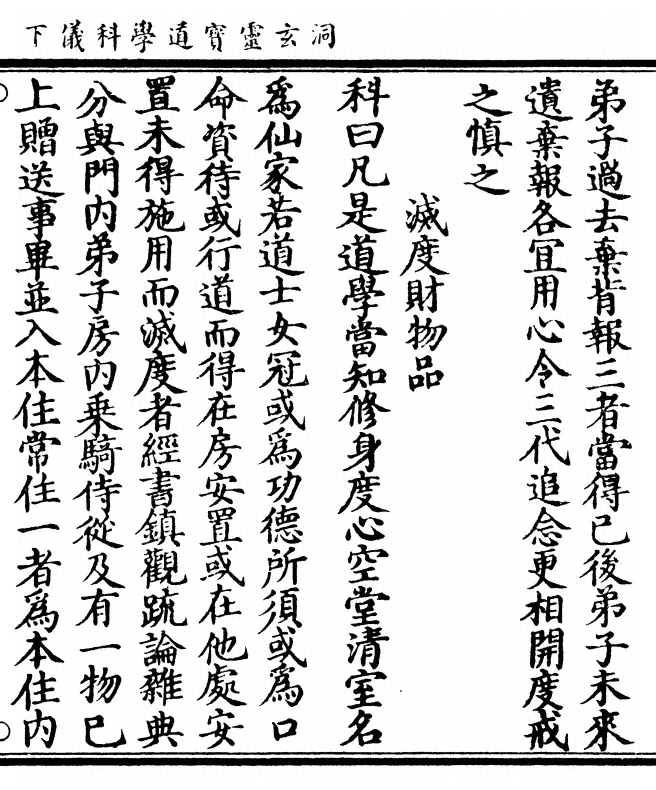 洞玄靈寶道學科儀下
弟子過去棄背報三者當得已後弟子未來
遺棄報各宜用心令三代追念更相開度戒
之慎之
滅度財物品
科曰凡是道學當知修身度心空堂清室名
爲仙家若道士女冠或爲功德所須或爲口
命資待或行道而得在房安置或在他處安
置未得施用而滅度者經書鎮觀䟽論雜典
分與門內弟子房內乘騎侍從及有一物已
上贈送事畢並入本住常住一者爲本住內